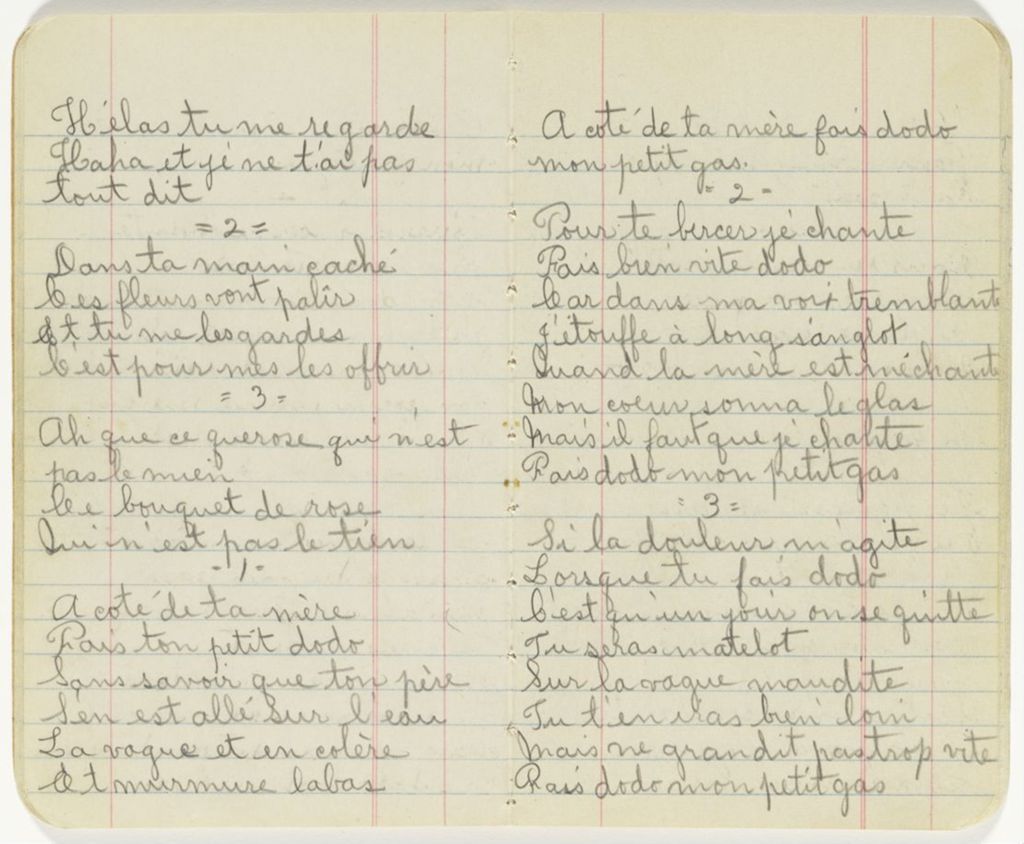 Hélas tu me regarde
Haha et je ne t'ai pas
tout dit
= 2 =
Dans ta main caché
Ces fleurs vont palir
Et tu me les gardes
C'est pour mes les offrir
= 3 =
Ah que ce querose qui n'est
pas le mien
Ce bouquet de rose
Qui n'est pas le tien
- 1 -
A coté de ta mère
Fais ton petit dodo
Sans savoir que ton père
S'en est allé Sur l'eau
La vague et en colère
Et murmure labas
A coté de ta mère fais dodo
mon petit gas.
- 2 -
Pour te bercer je chante
Fais bien vite dodo
Car dans ma voix tremblante
J'étouffe à long sanglot
Quand la mère est méchante
Mon coeur sonna le glas
Mais il faut que je chante
Fais dodo mon petit gas
= 3 =
Si la douleur m'agite
Lorsque tu fais dodo
C'est qu'un jour on se quitte
Tu seras matelot
Sur la vague maudite
Tu t'en iras bien loin
Mais ne grandit pas trop vite
Fais dodo mon petit gas